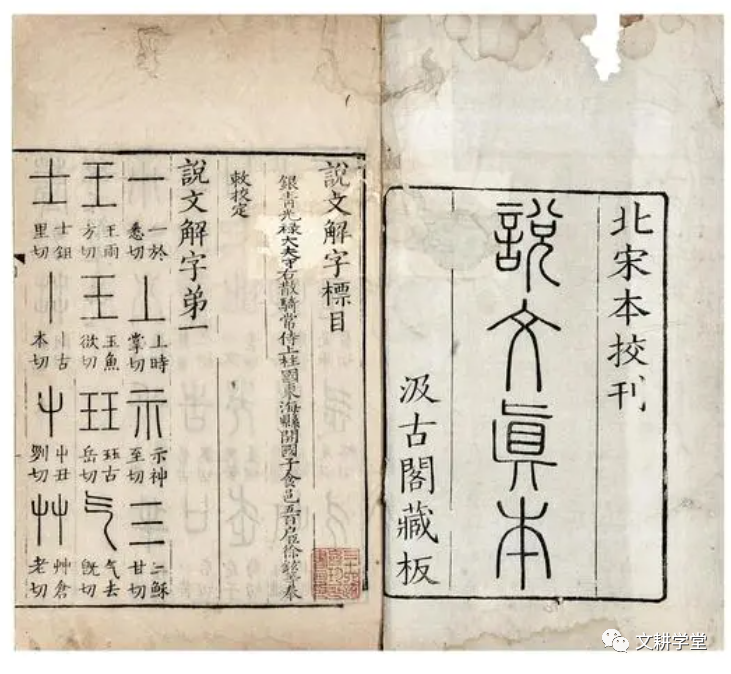 北宋本挍刊
說文眞本
汲古閣藏板
說文解字標目
銀青光祿大夫守右散騎常侍上柱國東海縣開國子食邑五百戶臣徐鉉等奉
敕挍定
說文解字弟一
一 一於悉切 丄 上時掌切 示 示神至切 三 三穌甘切
王 王雨方切 玉 玉魚欲切 玨 玨古岳切 气 气去旣切
士 士鉏里切 丨 丨古本切 屮 屮丑列切 艸 艸倉老切
文耕学堂